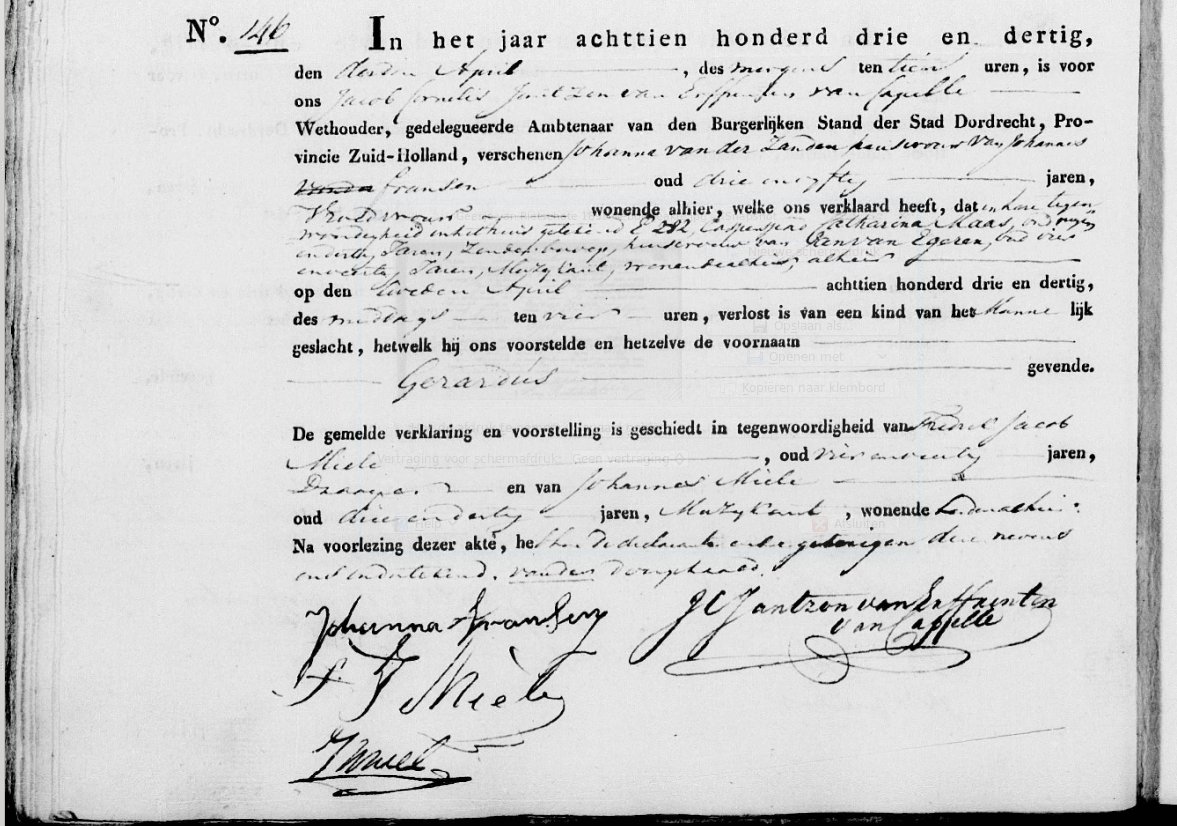 N°. 146
In het jaar achttien honderd drie en dertig,
den derden April, des morgens ten tien uren, is voor
ons Jacob Cornelis Jantzon van Erffrenten van Capelle
Wethouder, gedelegueerde Ambtenaar van den Burgerlijken Stand der Stad Dordrecht, Pro-
vincie Zuid-Holland, verschenen Johanna van der Zanden huisvrouw van Johannes
Fransen oud drie en vyftig jaren,
Vroedvrouw wonende alhier, welke ons verklaard heeft, dat in hare tegen
woordigheid in het huis getekend E 282, Catharina Maas, oud
en dertig Jaren, Zonder beroep, huisvrouw van Jan van Egeren, oud vier
en veertig Jaren, Muzykant, wonende alhier, alhier
op den tweeden April achttien honderd drie en dertig,
des middags ten vier uren, verlost is van een kind van het Manne lijk
geslacht, hetwelk hij ons voorstelde en hetzelve de voornaam
Gerardus gevende.
De gemelde verklaring en voorstelling is geschiedt in tegenwoordigheid van Fredrik Jacob
Miele, oud vier en veertig jaren,
en van Johannes Miele
oud drie en dertig jaren, Muzykant, wonende beiden alhier.
Na voorlezing dezer akte, hebben de declarante en getuigen deze nevens
ons ondertekend, vander doorgehaald.
Johanna Fransen
JC Jantzon van Erffrenten
van Capelle
F J Miele
J Miele
Opslaan als...
Openen met
Kopiëren naar klembord
Vertraging voor schermafdruk: Geen vertraging
Afsluiten